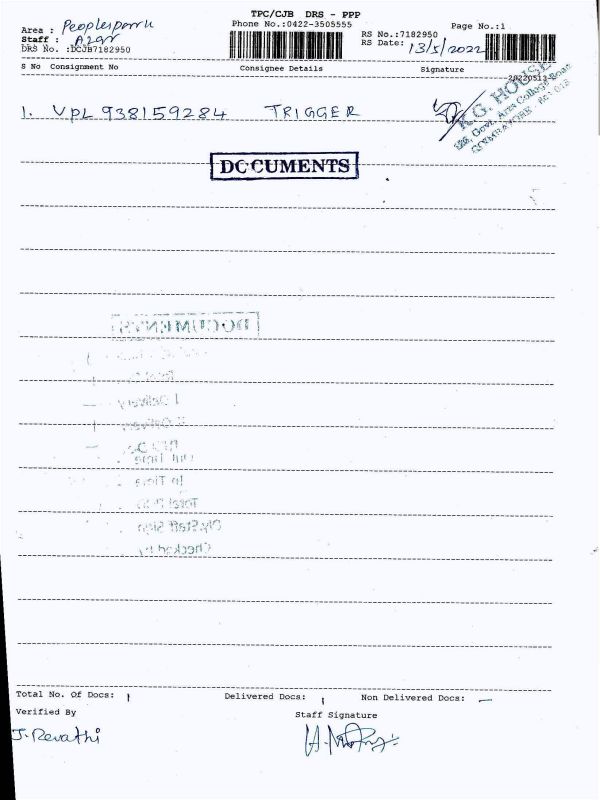 TPC/CJB DRS - PPP
Area : Peoplespark
Phone No.:0422-3505555
Page No.:1
Staff : Azar
RS No.:7182950
DRS No. :DCJB7182950
RS Date: 13/5/2022
S No Consignment No Consignee Details Signature
20220513
K.G. HOUSE
Govt. Arts College Road
COIMBATORE - 641 018
1. VPL 938159284 TRIGGER
DOCUMENTS
DOCUMENTS
I Delivery
Out Time
In Time
Total
Dly.Staff Sign
Checked by
Total No. Of Docs: 1 Delivered Docs: 1 Non Delivered Docs: —
Verified By Staff Signature
J. Revathi